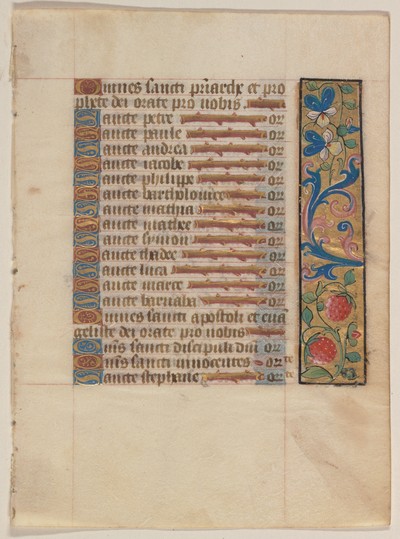 Omnes sancti pr̃iarche et pro
phete dei orate pro nobis.
Sancte petre or
Sancte paule or
Sancte andrea or
Sancte iacobe or
Sancte philippe or
Sancte bartholomee or
Sancte mathia or
Sancte mathee or
Sancte symon or
Sancte thadee or
Sancte luca or
Sancte marce or
Sancte barnaba or
Omnes sancti apostoli et euã
geliste dei orate pro nobis
Oñs sancti discipuli dñi or
Oñs sancti innocentes or
Sancte stephane or